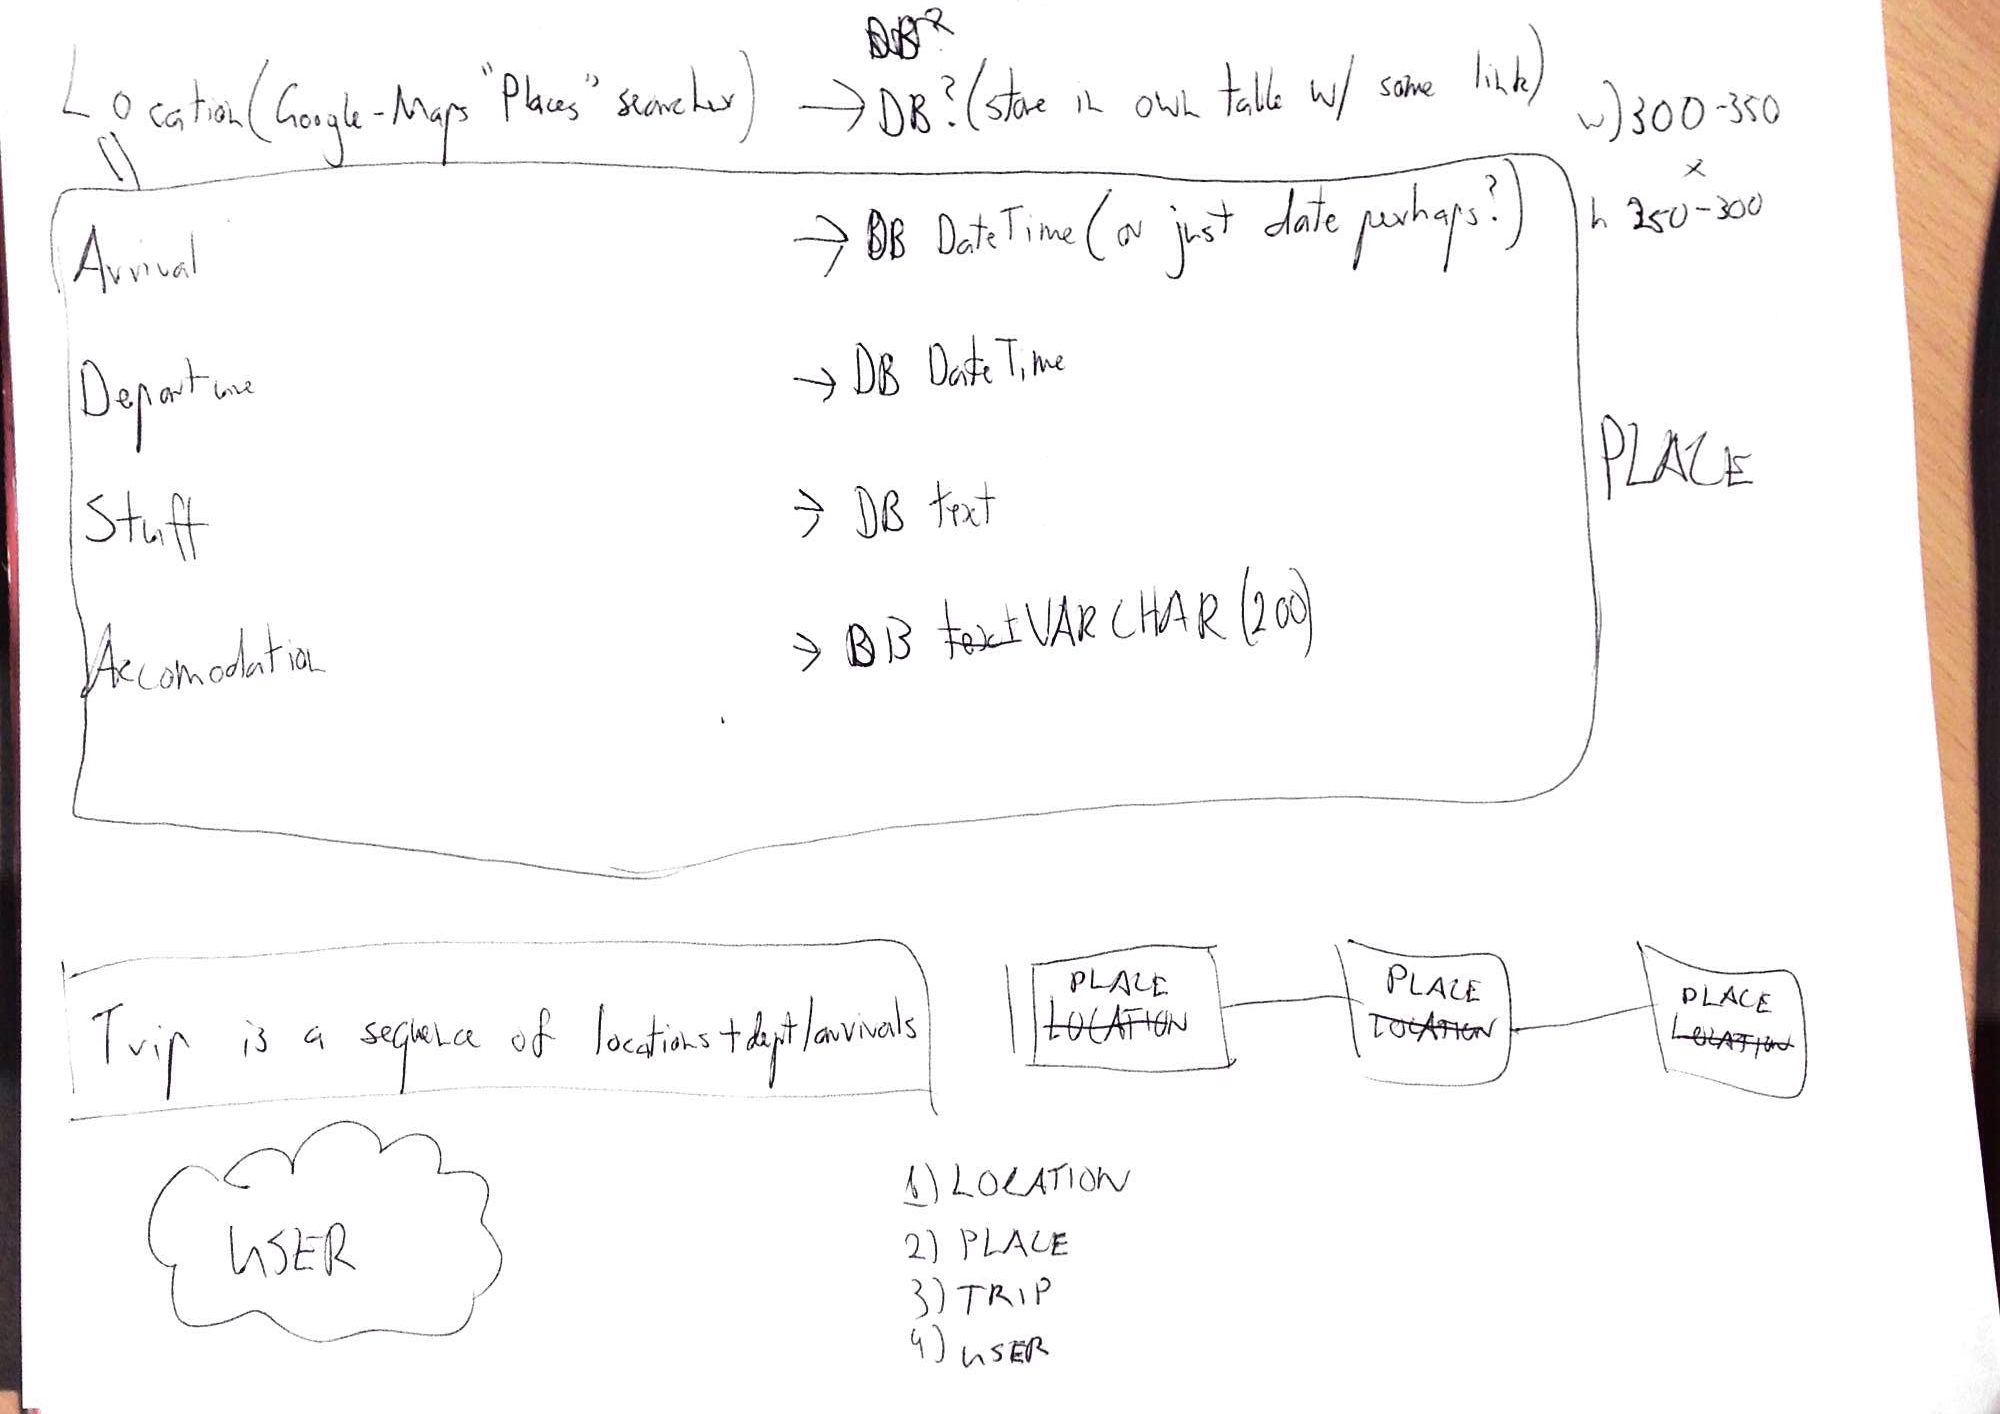 DB?
Location (Google-Maps "Places" searcher) → DB? (store in own table w/ some link)
w) 300-350
x
h 250-300
Arrival → DB DateTime (or just date perhaps?)
Departure → DB DateTime
PLACE
Stuff → DB text
Accomodation → DB text VARCHAR (200)
Trip is a sequence of locations + dept/arrivals
PLACE PLACE PLACE
LOCATION LOCATION LOCATION
USER
1) LOCATION
2) PLACE
3) TRIP
4) USER